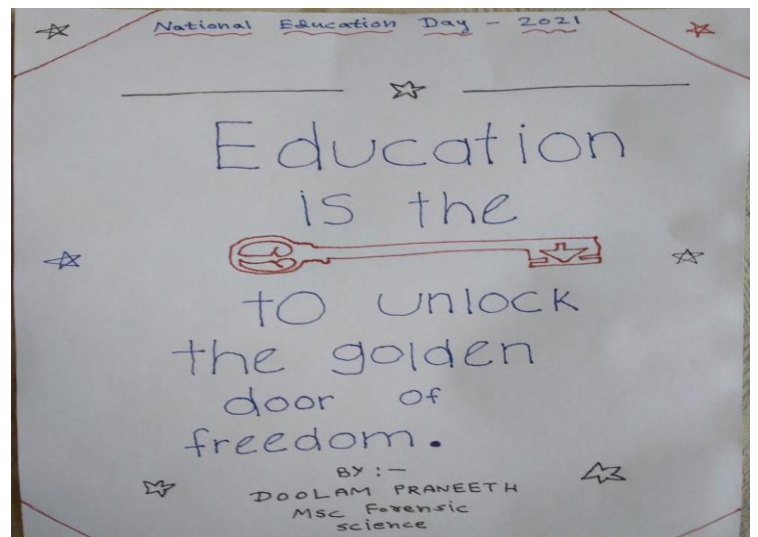 National Education Day - 2021
Education
is the
to unlock
the golden
door of
freedom.
BY :-
DOOLAM PRANEETH
MSC Forensic
science